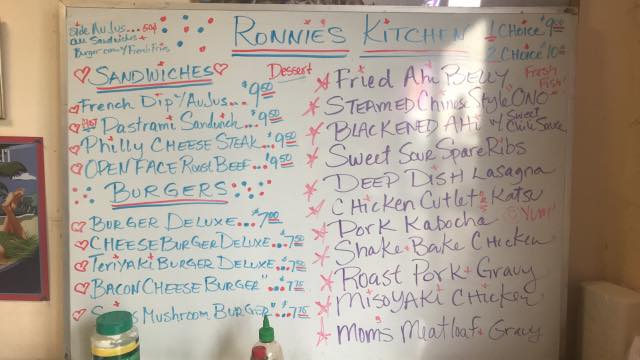 Side AuJus....50¢
All Sandwiches +
Burger come w/ French Fries
RONNIE'S KITCHEN
1 CHOICE $9.00
2 CHOICE $10
SANDWICHES
French Dip w/AuJus...$9.50
HOT Pastrami Sandwich...$9.50
Philly CHEESE STEAK...$9.50
OPEN FACE Roast BEEF...$9.50
BURGERS
BURGER DELUXE...$7.00
CHEESE BURGER DELUXE...$7.50
TeriYAKi BURGER DELUXE...$7.50
BACON CHEESE BURGER...$7.75
Mushroom BURGER...$7.75
Dessert
Fried Ahi BELLY
FRESH FISH!
STEAMED Chinese Style ONO
BLACKENED AHi w/ Sweet Chili Sauce
Sweet Sour Spare Ribs
DEEP DISH Lasagna
CHicken Cutlet Katsu
Pork Kabocha
Yum!
Shake + Bake CHicken
Roast Pork + Gravy
MISOYAKi CHicken
Mom's Meatloaf + Gravy